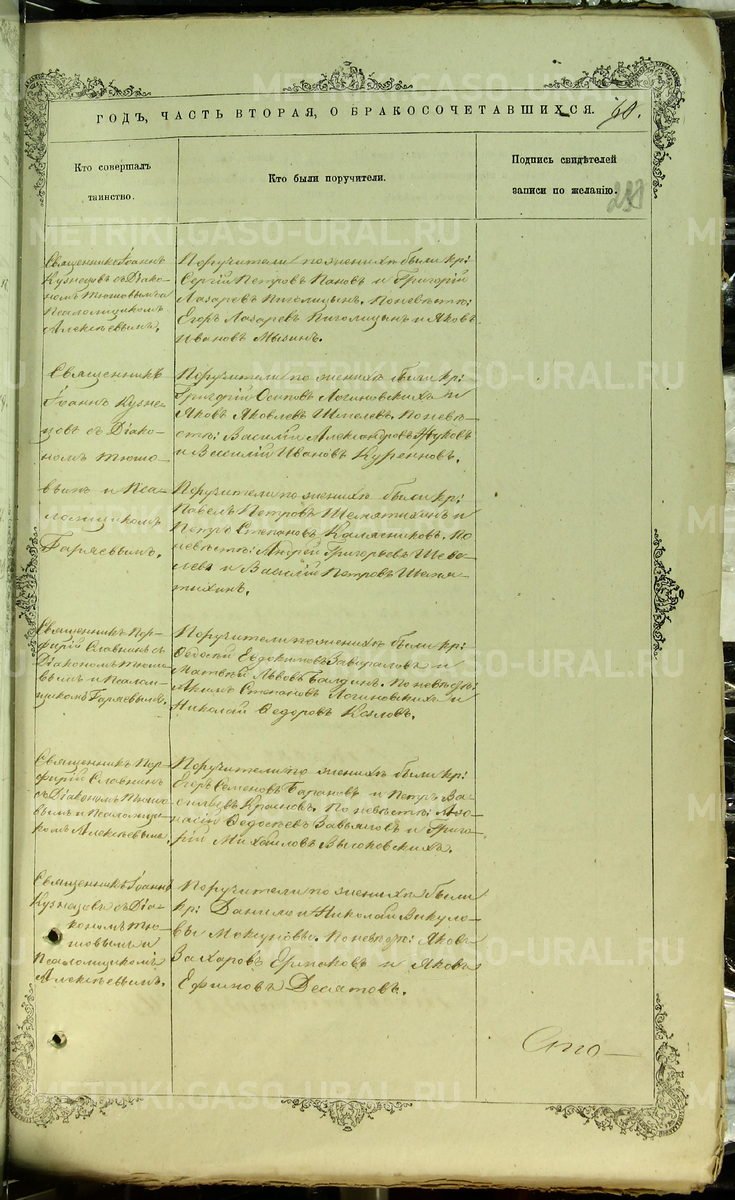 ГОДЪ, ЧАСТЬ ВТОРАЯ, О БРАКОСОЧЕТАВШИХСЯ.
Кто совершалъ
таинство.
Кто были поручители.
Подпись свидѣтелей
записи по желанію.
Священникъ Іоаннъ
Кузнецовъ съ Діако-
номъ Тюшовымъ и
Псаломщикомъ
Алексѣевымъ.
Поручители по женихѣ были кр:
Сергій Петровъ Пановъ и Григорій
Лазаревъ Пиголицынъ. По невѣстѣ:
Егоръ Лазаревъ Пиголицынъ и Яковъ
Ивановъ Мызинъ.
Священникъ
Іоаннъ Кузне-
цовъ съ Діако-
номъ Тюшо-
вымъ и Пса-
ломщикомъ
Гаряевымъ.
Поручители по женихѣ были кр:
Григорій Осиповъ Логиновскихъ и
Яковъ Яковлевъ Шмелевъ. По невѣ-
стѣ: Василій Александровъ Жуковъ
и Василій Ивановъ Куренновъ.
Поручители по женихѣ были кр:
Павелъ Петровъ Шемятихинъ и
Петръ Степановъ Калясниковъ. По
невѣстѣ: Андрей Григорьевъ Шева-
левъ и Василій Петровъ Шемя-
тихинъ.
Священникъ Пор-
фирій Славнинъ съ
Діакономъ Тюшо-
вымъ и Псалом-
щикомъ Гаряевымъ.
Поручители по женихѣ были кр:
Ѳедосій Евдокимовъ Завираловъ и
Матвѣй Львовъ Балдинъ. По невѣстѣ:
Акимъ Степановъ Логиновскихъ и
Николай Ѳедоровъ Козловъ.
Священникъ Пор-
фирій Славнинъ
съ Діакономъ Тюшо-
вымъ и Псаломщи-
комъ Алексѣевымъ.
Поручители по женихѣ были кр:
Егоръ Семеновъ Барановъ и Петръ Ва-
сильевъ Крапковъ. По невѣстѣ: Аѳа-
насій Ѳедосѣевъ Завьяловъ и Григо-
рій Михайловъ Высоковскихъ.
Священникъ Іоаннъ
Кузнецовъ съ Діа-
кономъ Тю-
шовымъ и
Псаломщикомъ
Алексѣевымъ.
Поручители по женихѣ были
кр: Данило и Николай Викуло-
вы Мокуновы. По невѣстѣ: Яковъ
Захаровъ Ермаковъ и Яковъ
Ефимовъ Десятовъ.
METRIKI.GASO-URAL.RU